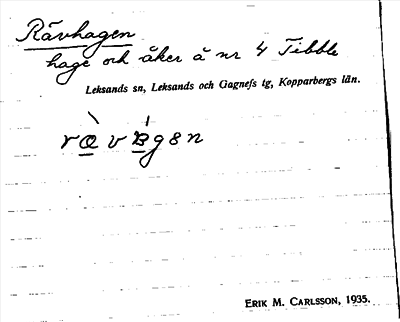 Rävhagen
hage och åker å nr 4 Tibble
Leksands sn, Leksands och Gagnefs tg, Kopparbergs län.
ERIK M. CARLSSON, 1935.